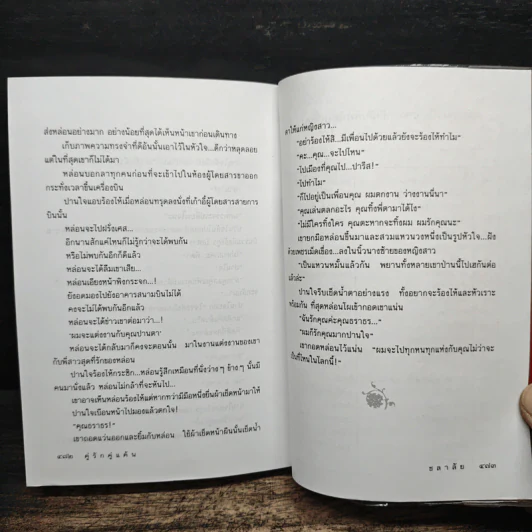 ส่งหล่อนอย่างมาก อย่างน้อยที่สุดได้เห็นหน้าเขาก่อนเดินทาง
เก็บภาพความทรงจำที่ดีอันนั้นเอาไว้ในหัวใจ...ดีกว่าหลุดลอย
แต่ในที่สุดเขาก็ไม่ได้มา
หล่อนบอกลาทุกคนก่อนที่จะเข้าไปในห้องผู้โดยสารขาออก
กระทั่งเวลาขึ้นเครื่องบิน
ปานใจแอบร้องไห้เมื่อหล่อนทรุดลงนั่งที่เก้าอี้ผู้โดยสารสายการ
บินนั้น
หล่อนจะไปฝรั่งเศส...
อีกนานสักแค่ไหนก็ไม่รู้กว่าจะได้พบกัน
หรือไม่พบกันอีกก็ดีแล้ว
หล่อนจะได้ลืมเขาเสีย...
หล่อนเอียงหน้าพิงกระจก...!
ยังอดมองไปยังอาคารสนามบินไม่ได้
คงจะไม่ได้พบกันอีกแล้ว
หล่อนจะได้ข่าวเขาต่อมาว่า...!
"ผมจะแต่งงานกับคุณปานดา"
หล่อนจะได้กลับมาก็คงจะตอนนั้น มาในงานแต่งงานของเขา
กับพี่สาวสุดที่รักของหล่อน
ปานใจร้องไห้กระซิก...หล่อนรู้สึกเหมือนที่นั่งว่างๆ ข้างๆ นั้นมี
คนมานั่งแล้ว หล่อนไม่กล้าที่จะหันไป...
เขาอาจเห็นหล่อนร้องไห้แต่หากทว่ามีมือหนึ่งยื่นผ้าเช็ดหน้ามาให้
ปานใจเบือนหน้าไปมองแล้วตกใจ!
"คุณธราธร!"
เขาถอดแว่นออกและยิ้มกับหล่อน ใช้ผ้าเช็ดหน้าผืนนั้นเช็ดน้ำ
๔๗๒ คู่รักคู่แค้น
ตาให้แก่หญิงสาว...
"อย่าร้องไห้สิ...มีเพื่อนไปด้วยแล้วยังจะร้องไห้ทำไม"
"คะ...คุณ...จะไปไหน"
"ไปเมืองที่คุณไป...ปารีส!"
"ไปทำไม"
"ก็ไปอยู่เป็นเพื่อนคุณ ผมตกงาน ว่างงานนี่นา"
"คุณเล่นตลกอะไร คุณทิ้งพี่ดามาได้ไง"
"ไม่มีใครทิ้งใคร คุณตะหากจะทิ้งผม ผมรักคุณนะ"
เขายกมือหล่อนขึ้นมาและสวมแหวนวงหนึ่งเป็นรูปหัวใจ...ฝัง
ด้วยเพชรเม็ดเรื่อง...ลงในนิ้วนางซ้ายของหญิงสาว
"เป็นแหวนหมั้นแล้วกัน พยานทั้งหลายเขาป่านนี้ไปเฮกันต่อ
แล้วล่ะ"
ปานใจรีบเช็ดน้ำตาอย่างแรง ทั้งอยากจะร้องไห้และหัวเราะ
พร้อมกัน ที่สุดหล่อนโผเข้ากอดเขาแน่น
"ฉันรักคุณค่ะคุณธราธร..."
"ผมก็รักคุณมากปานใจ"
เขากอดหล่อนไว้แน่น "ผมจะไปทุกหนทุกแห่งกับคุณไม่ว่าจะ
เป็นที่ไหนในโลกนี้!"
ชลาลัย ๔๗๓